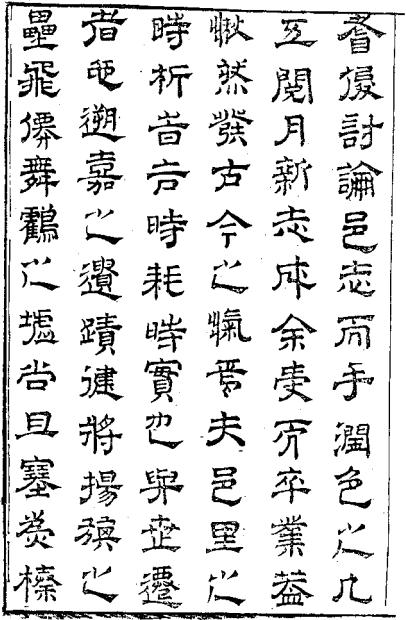 耆俊討論邑志而手潤色之凡
五閱月新志成余受而卒業蓋
愀然發古今之慨焉夫邑里之
時析旹合時耗時實也與世遷
者也遡嘉之遺蹟健將揚旗之
壘飛僊舞鶴之墟尚且塞荒榛